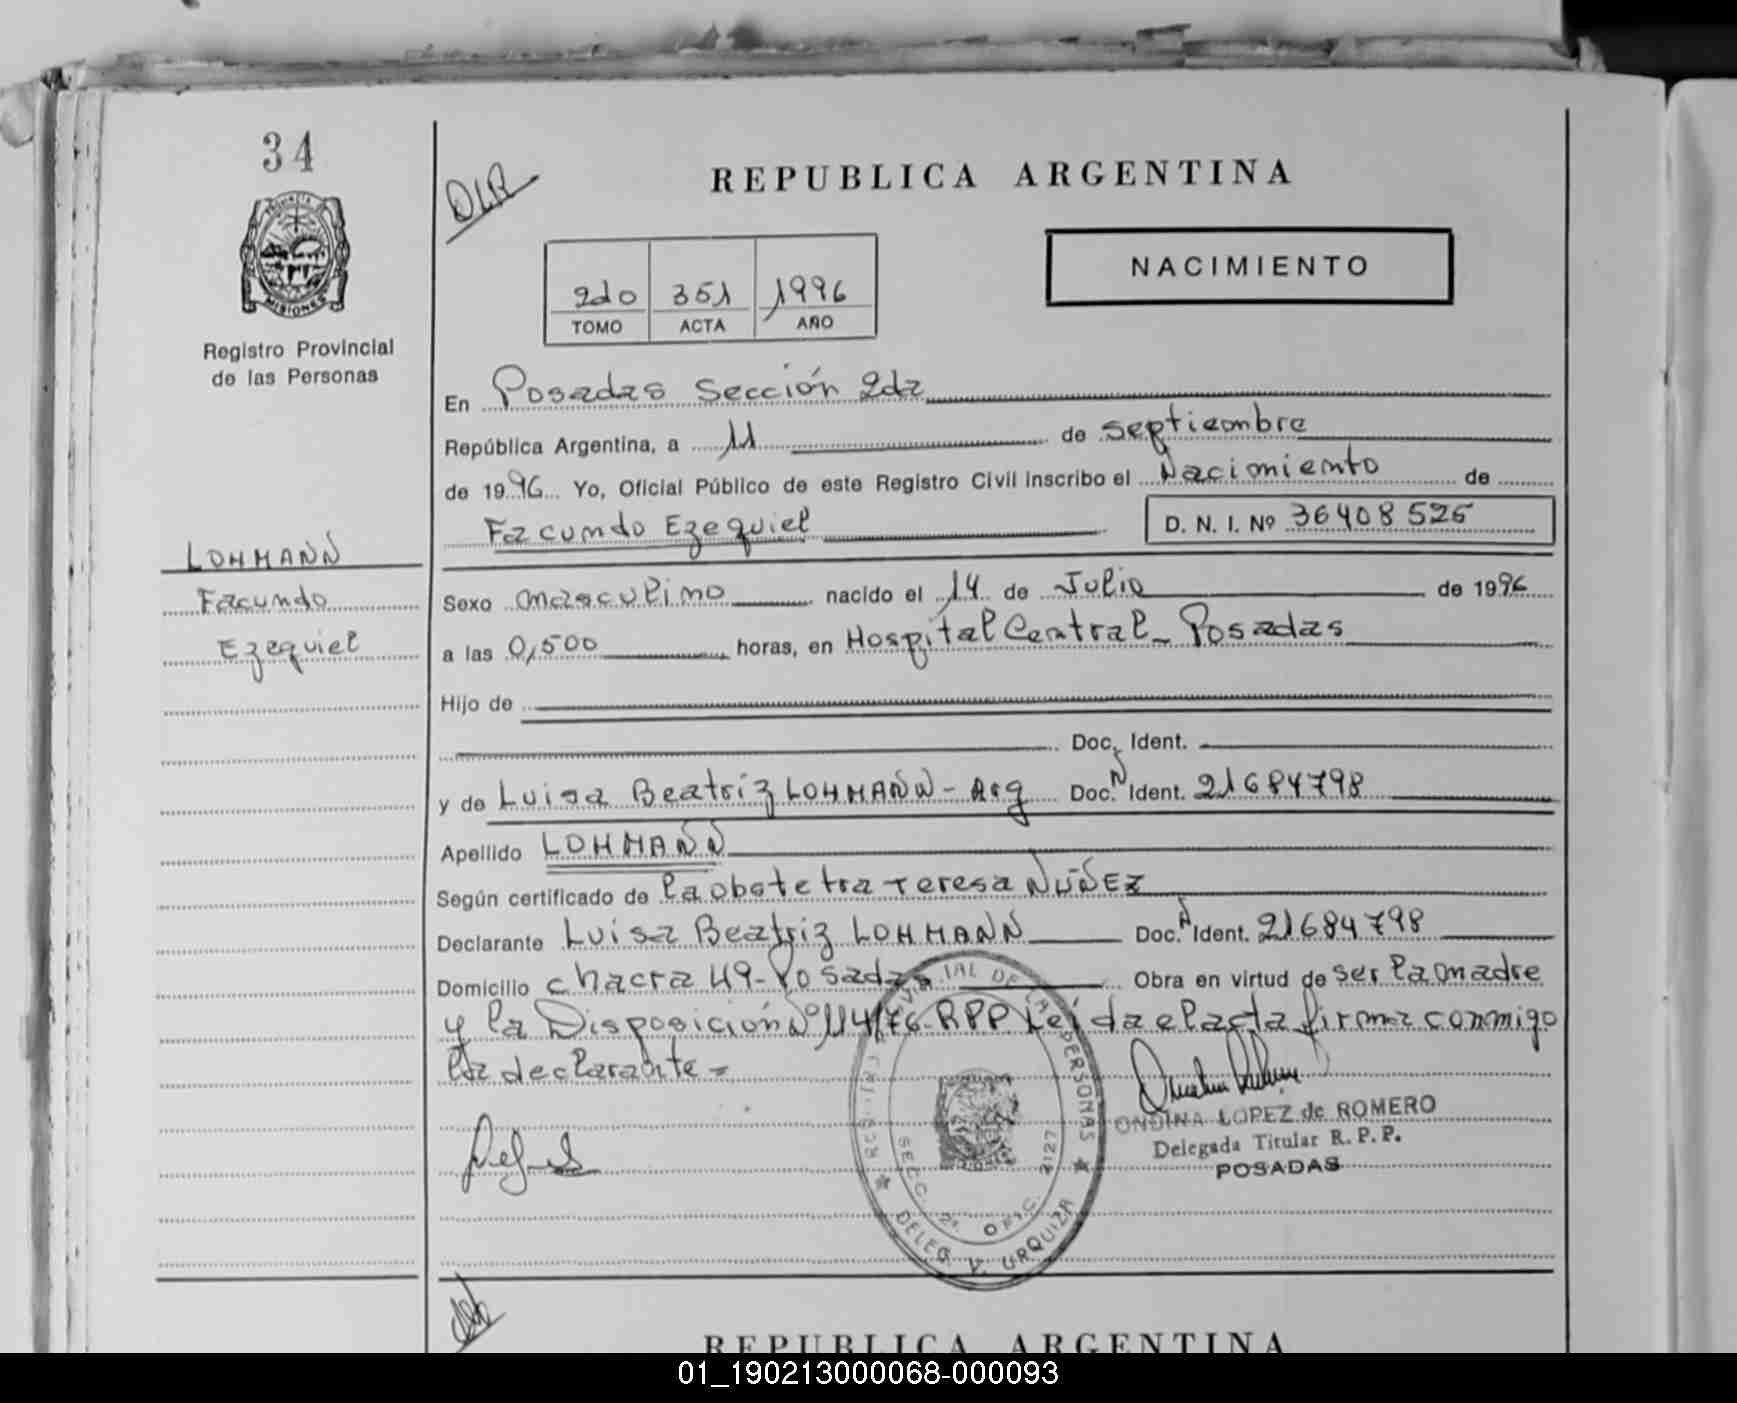 34
PROVINCIA
MISIONES
Registro Provincial
de las Personas
DLR
REPUBLICA ARGENTINA
NACIMIENTO
2do 351 1996
TOMO ACTA AÑO
En Posadas Sección 2da
República Argentina, a 11 de septiembre
de 1996 Yo, Oficial Público de este Registro Civil inscribo el Nacimiento de
Facundo Ezequiel D. N. I. Nº 36408525
LOHMANN
Facundo
Ezequiel
Sexo masculino nacido el 14 de Julio de 1996
a las 0,500 horas, en Hospital Central_ Posadas
Hijo de
Doc. Ident.
y de Luisa Beatriz LOHMANN - Arg Doc. N Ident. 21684798
Apellido LOHMANN
Según certificado de la obstetra Teresa NUÑEZ
Declarante Luisa Beatriz LOHMANN Doc. N Ident. 21684798
Domicilio chacra 49-Posadas Obra en virtud de ser la madre
y la Disposición Nº 114/76-RPP Leída el acta firma conmigo
la declarante =
REGISTRO PROVINCIAL DE LAS PERSONAS
SECC. 2ª OFIC. 2127
DELEG. V. URQUIZA
ONDINA LOPEZ de ROMERO
Delegada Titular R. P. P.
POSADAS
REPUBLICA ARGENTINA
01_190213000068-000093